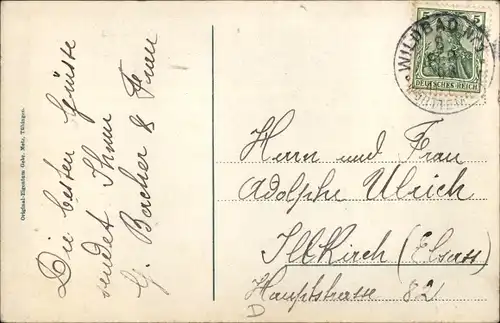 Die besten Grüsse
sendet Ihnen
G. Bocher & Frau
Original-Eigentum Gebr. Metz, Tübingen.
5 5
DEUTSCHES REICH
WILDBAD
Herrn und Frau
Adolphe Ulrich
Illkirch (Elsass)
Hauptstrasse 82
D